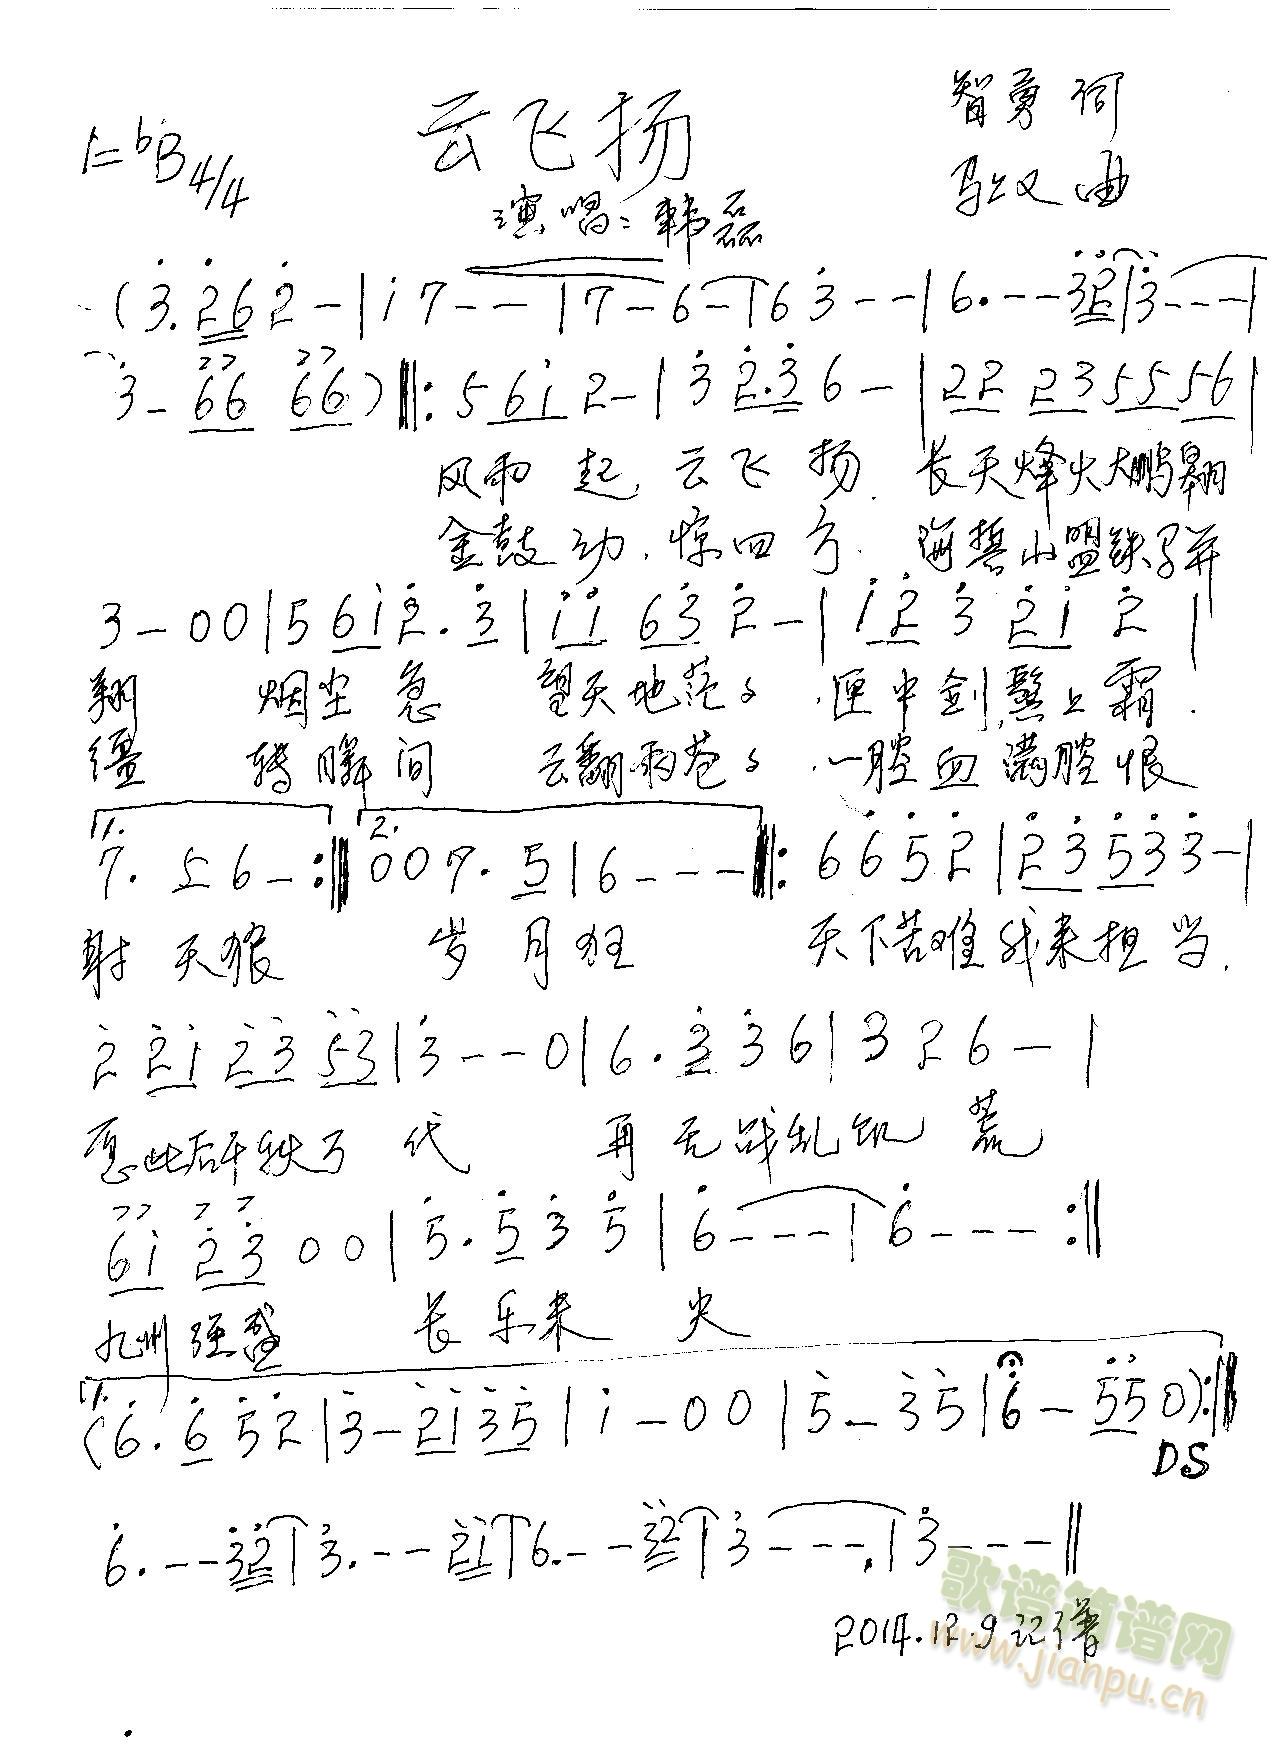 云飞扬
智勇 词
1=bB 4/4
曲
演唱：韩磊
(3.262-|i7---|7-6-|63--|6.---32|3---|
3-66 66)‖:56i2-|32.36-|22 235556|
风雨起，云飞扬．长天烽火大鹏翱
金鼓动．惊四方．海誓山盟铁马并
3-00|56i2.3|ii 632-|i23 2i 2|
翔 烟尘急 望天地茫々．匣中剑,鬓上霜．
缰 转瞬间 云翻雨苍々．一腔血满腔恨
1. 2.
7.56-:‖007.5|6---‖:6652|23533-|
射天狼 岁月狂 天下苦难我来担当．
2 2i 23 53|3--0|6.336|326-|
愿此后千秋万代 再无战乱饥荒
6i 2300|5.535|6---|6---:‖
九州强盛 长乐未央
1.
(6.652|3-2i35|i-00|5-35|6-550):‖
DS
6.---32|3.---2i|6.---32|3---,|3---‖
2014.12.9记谱
歌谱简谱网
www.jianpu.cn